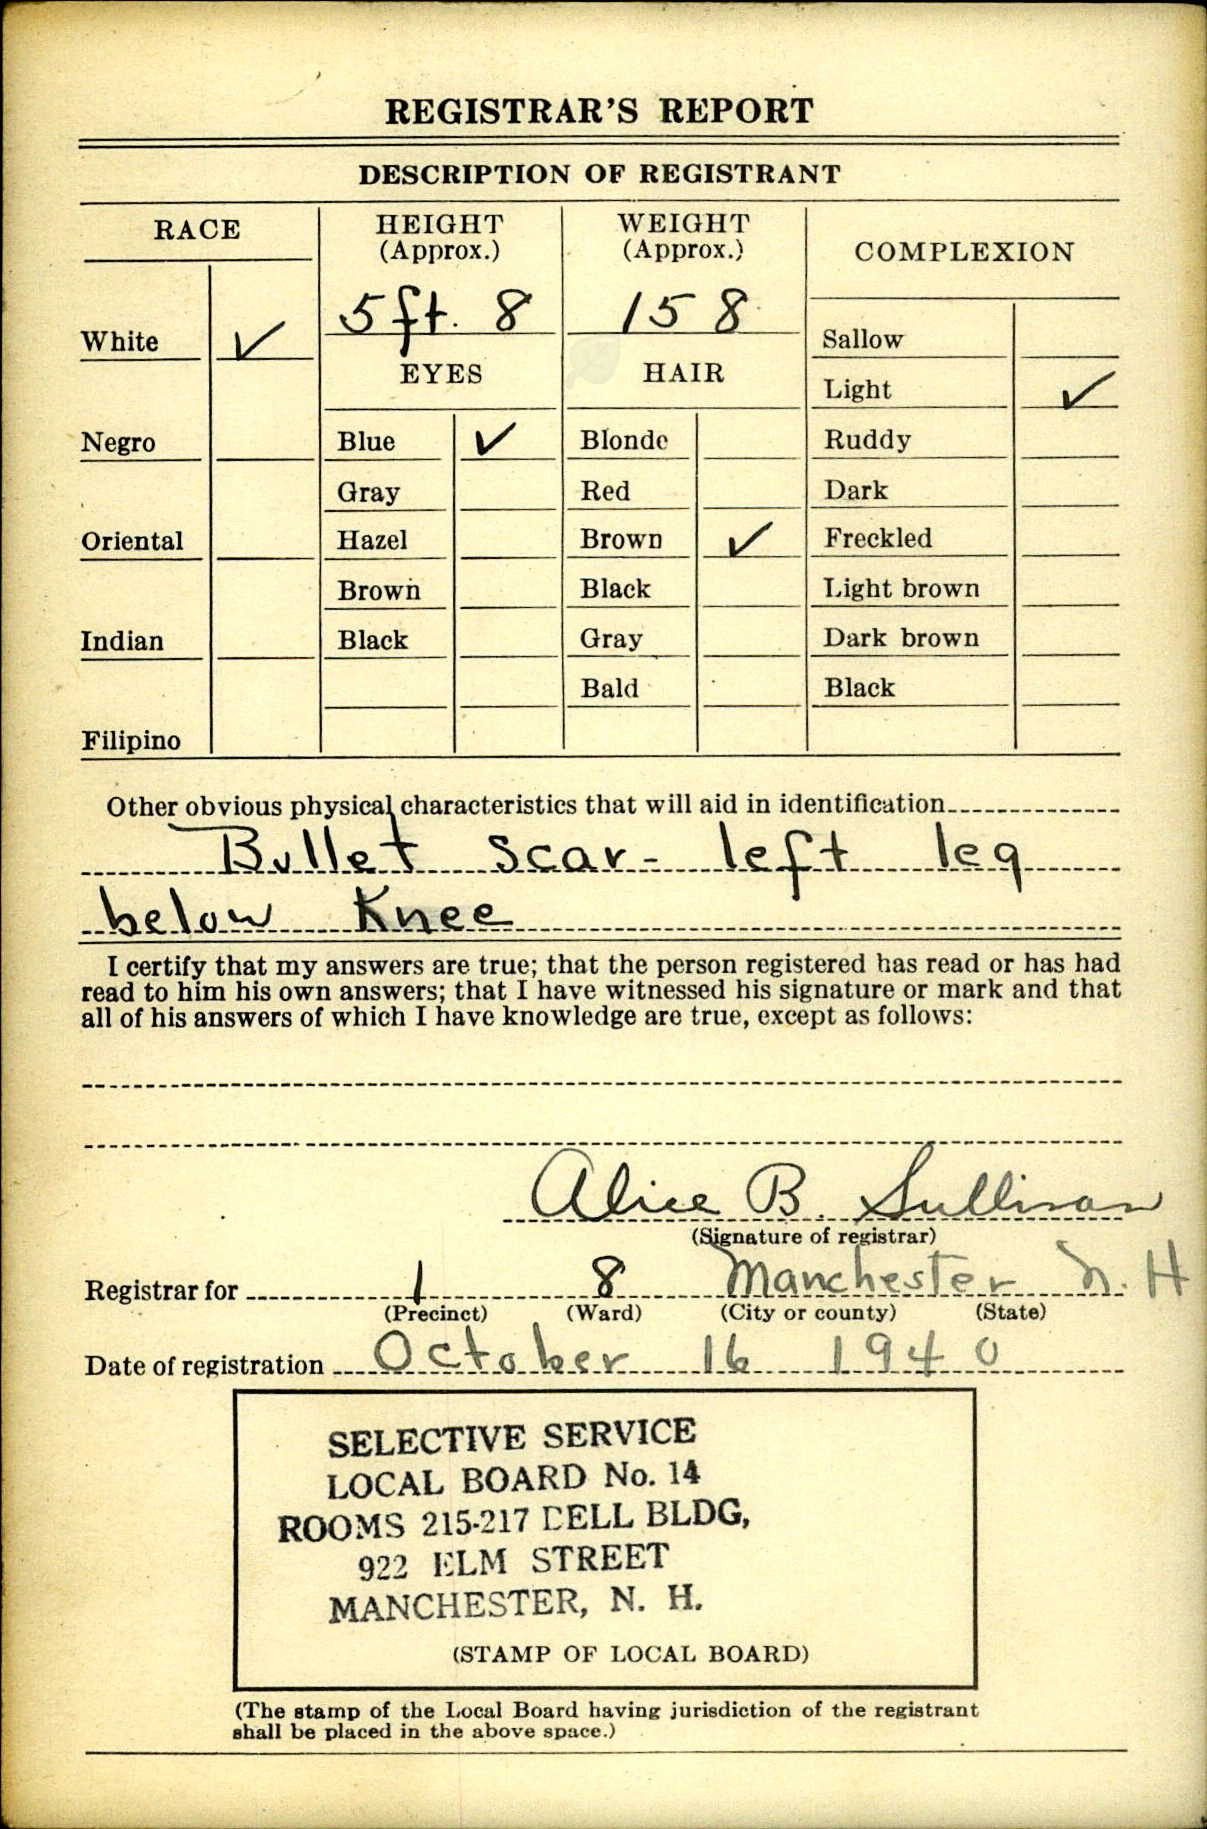 REGISTRAR'S REPORT
DESCRIPTION OF REGISTRANT
RACE
HEIGHT
(Approx.)
WEIGHT
(Approx.)
COMPLEXION
5 ft. 8
158
White ✓
Sallow
EYES
HAIR
Light ✓
Negro
Blue ✓
Blonde
Ruddy
Gray
Red
Dark
Oriental
Hazel
Brown ✓
Freckled
Brown
Black
Light brown
Indian
Black
Gray
Dark brown
Bald
Black
Filipino
Other obvious physical characteristics that will aid in identification
Bullet scar - left leg
below Knee
I certify that my answers are true; that the person registered has read or has had
read to him his own answers; that I have witnessed his signature or mark and that
all of his answers of which I have knowledge are true, except as follows:
Alice B. Sullivan
(Signature of registrar)
Registrar for 1 8 Manchester N. H
(Precinct) (Ward) (City or county) (State)
Date of registration October 16 1940
SELECTIVE SERVICE
LOCAL BOARD No. 14
ROOMS 215-217 BELL BLDG,
922 ELM STREET
MANCHESTER, N. H.
(STAMP OF LOCAL BOARD)
(The stamp of the Local Board having jurisdiction of the registrant
shall be placed in the above space.)